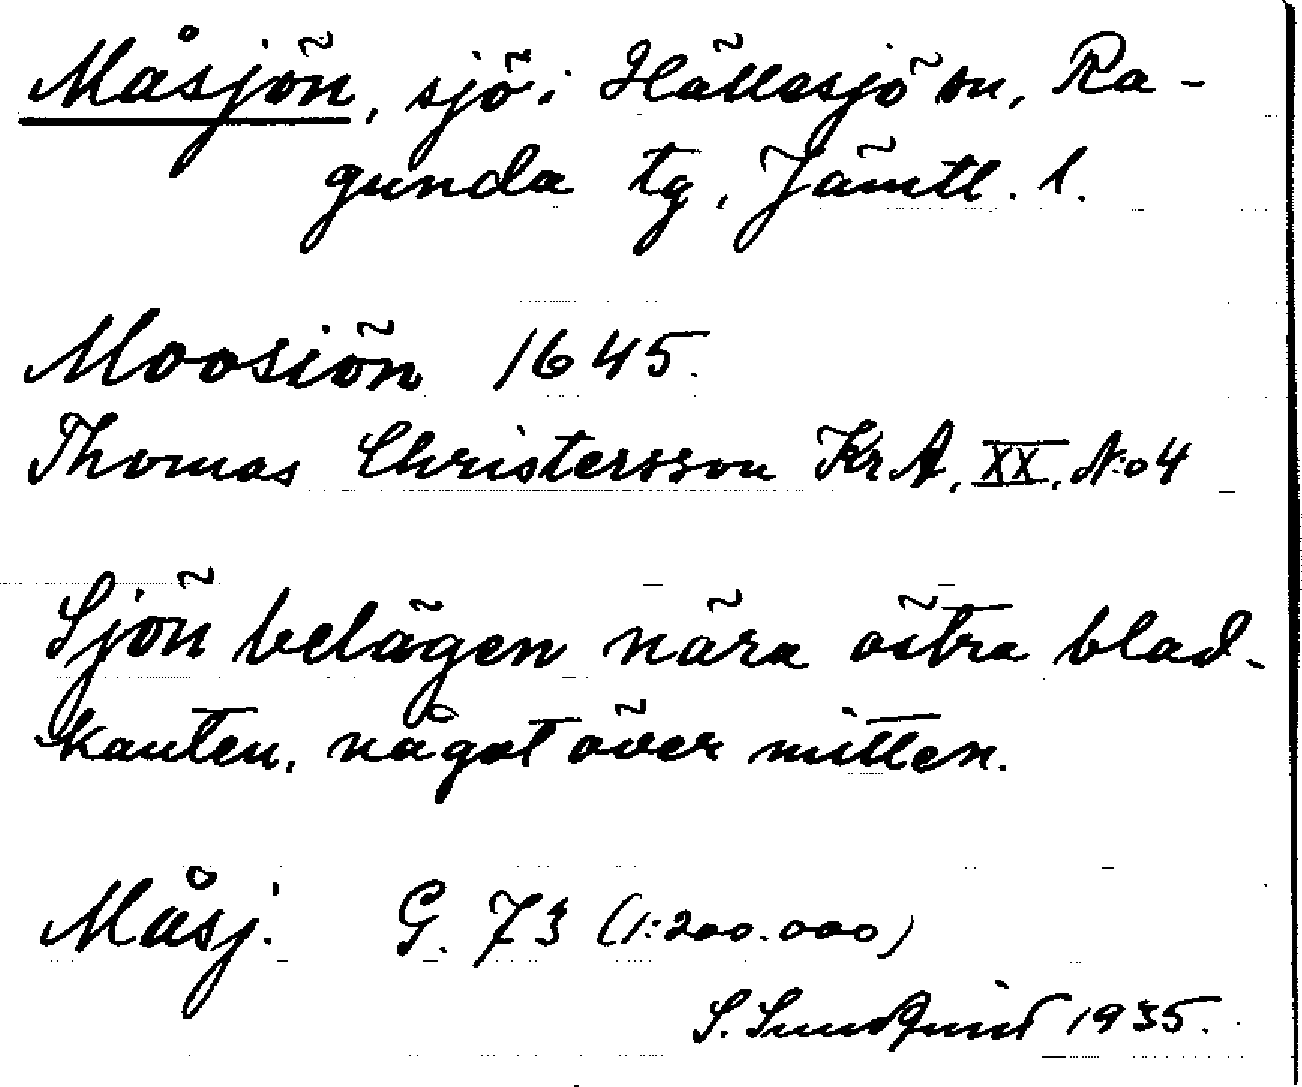 Måsjön, sjö i Hällesjö sn, Ra-
gunda tg, Jämtl. l.
Moosiön 1645.
Thomas Christersson Kr A, XX, N:o 4
Sjön belägen nära östra blad-
kanten, något över mitten.
Måsj. G. 73 (1:200.000)
S. Sundqvist 1935.